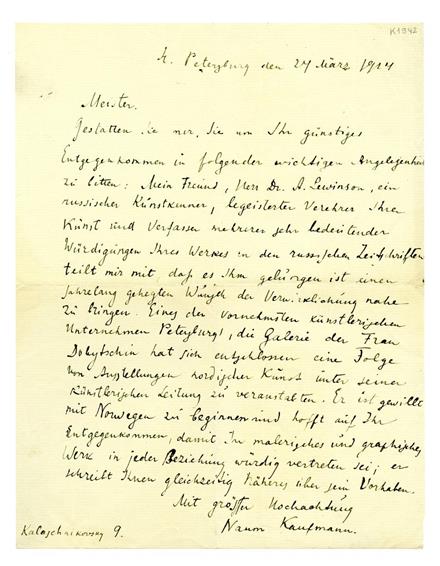 K1942
St. Petersburg den 27 März 1914
Meister.
Gestatten Sie mir, Sie um Ihr günstiges
Entgegenkommen in folgender wichtigen Angelegenheit
zu bitten: Mein Freund, Herr Dr. A. Lewinson, ein
russischer Kunstkenner, begeisterter Verehrer Ihrer
Kunst und Verfasser mehrerer sehr bedeutender
Würdigungen Ihres Werkes in den russischen Zeitschriften
teilt mir mit, dass es Ihm gelungen ist einen
jahrelang gehegten Wunsch der Verwirklichung nahe
zu bringen. Eines der vornehmsten künstlerischen
Unternehmen Petersburgs, die Galerie der Frau
Dobytschin hat sich entschlossen eine Folge
von Ausstellungen nordischer Kunst unter seiner
künstlerischen Leitung zu veranstalten. Er ist gewillt
mit Norwegen zu beginnen und hofft auf Ihr
Entgegenkommen, damit Ihr malerisches und graphisches
Werk in jeder Beziehung würdig vertreten sei; er
schreibt Ihnen gleichzeitig Näheres über sein Vorhaben.
Mit grösster Hochachtung
Naum Kaufmann.
Kalaschnikovsky 9.